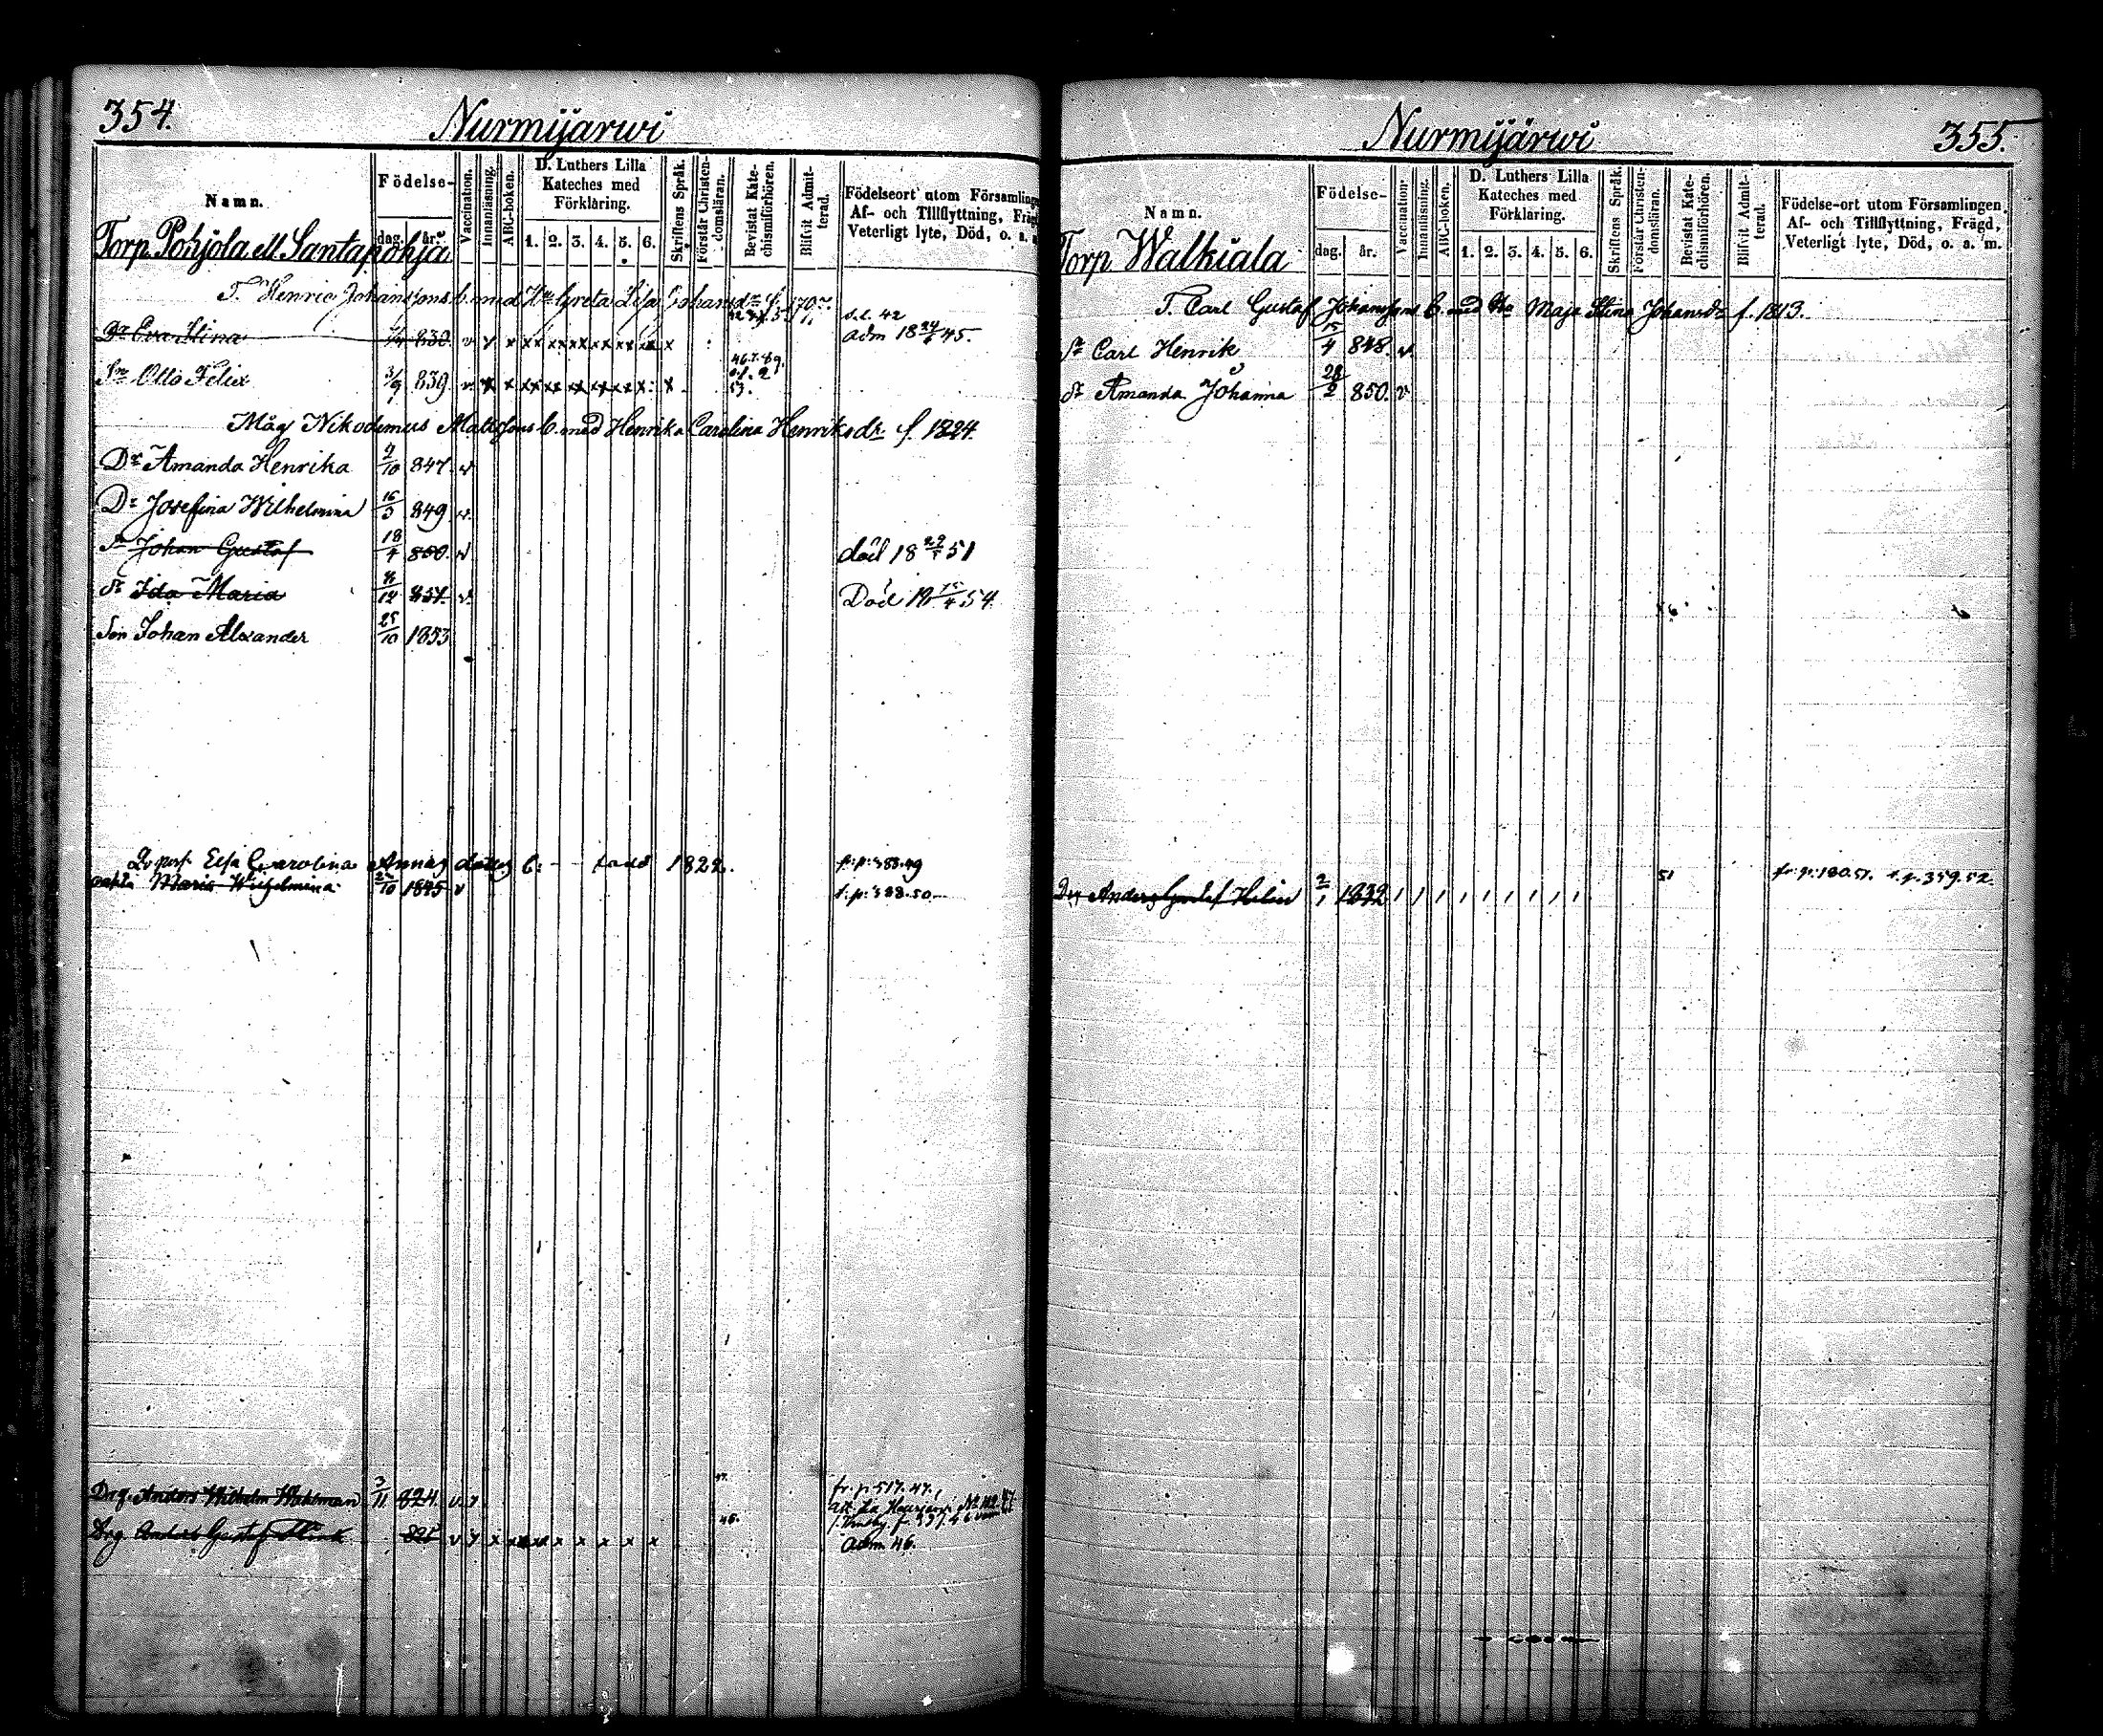 354.
Nurmijärwi
Namn.
Födelse-
dag. år.
Vaccination.
Innanläsning.
ABC-boken.
D. Luthers Lilla
Kateches med
Förklaring.
1. 2. 3. 4. 5. 6.
Skriftens Språk.
Förstår Christen-
domsläran.
Bevistat Kate-
chismiförhören.
Blifvit Admit-
terad.
Födelseort utom Församlinge
Af- och Tillflyttning, Fräg
Veterligt lyte, Död, o. a.
Torp Pohjola ell Santapohja
T. Henric Johanssons b. med Hu Greta Lisa Johansdr f.
s. l. 42
Dr Eva Stina 830 v v x xx xx xx xx xx x x
adm 18 24/6 45.
Sn Otto Felix 3/9 839 v x x xx xx xx xx x x x
53.
Måg Nikodemus Mattssons b. med Henrika Carolina Henriksdr f. 1824.
Dr Amanda Henrika 9/10 847 v
Dr Josefina Wilhelmina 16/3 849 v
Sn Johan Gustaf 18/4 850. v död 18 51
dr Ida Maria 12 851. v Död 18 15/4 54.
Son Johan Alexander 25/10 1853
Elsa Carolina Annas dotter b. född 1822. f. p. 388.49
Maria Wilhelmina 10 1845 v t. p. 388.50
Drg. Anders Wilhelm Wahlman 3/11 824. v v
47.
fr. p. 517. 47.
Drg Anders Gustaf Flink 825 v v x x x x x x x x
46.
adm. 46.
Nurmijärwi
355.
Namn.
Födelse-
dag. år.
Vaccination.
Innanläsning.
ABC-boken.
D. Luthers Lilla
Kateches med
Förklaring.
1. 2. 3. 4. 5. 6.
Skriftens Språk.
Förstår Christen-
domsläran.
Bevistat Kate-
chismiförhören.
Blifvit Admit-
terad.
Födelse-ort utom Församlingen,
Af- och Tillflyttning, Frägd,
Veterligt lyte, Död, o. a. m.
Torp Walkiala
T. Carl Gustaf Johanssons b. med Hu Maja Stina Johansdr f. 1813.
Sn Carl Henrik 15/4 848. v
dr Amanda Johanna 28/2 850. v
Drg Anders Gustaf Helin 2/1 1832 51 fr. p. 180.51. t. p. 359.52.